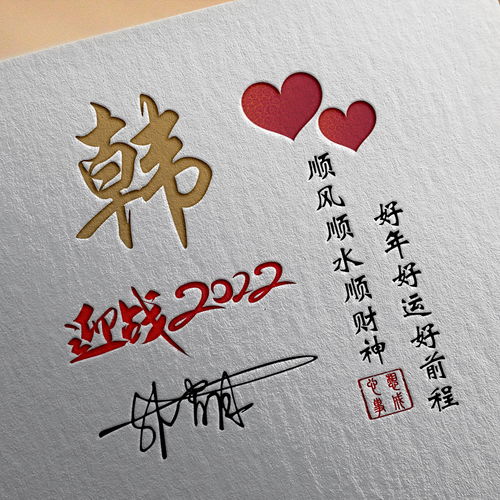 韩
迎战2022
顺风顺水顺财神
好年好运好前程
心想事成